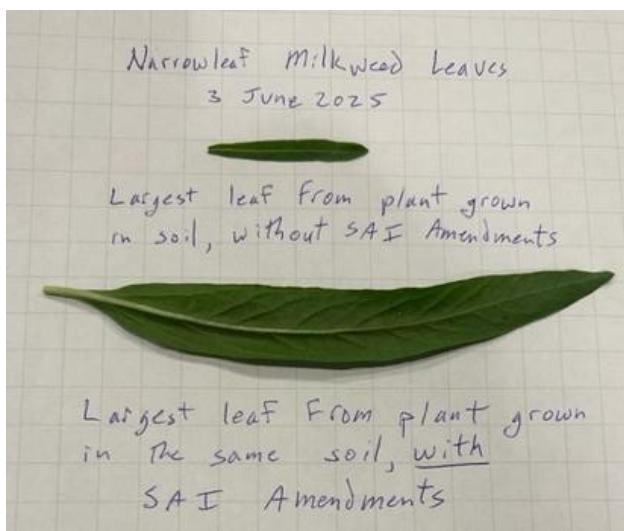 Narrowleaf Milkweed Leaves
3 June 2025
Largest leaf from plant grown
in soil, without SAI Amendments
Largest leaf From plant grown
in the same soil, with
SAI Amendments